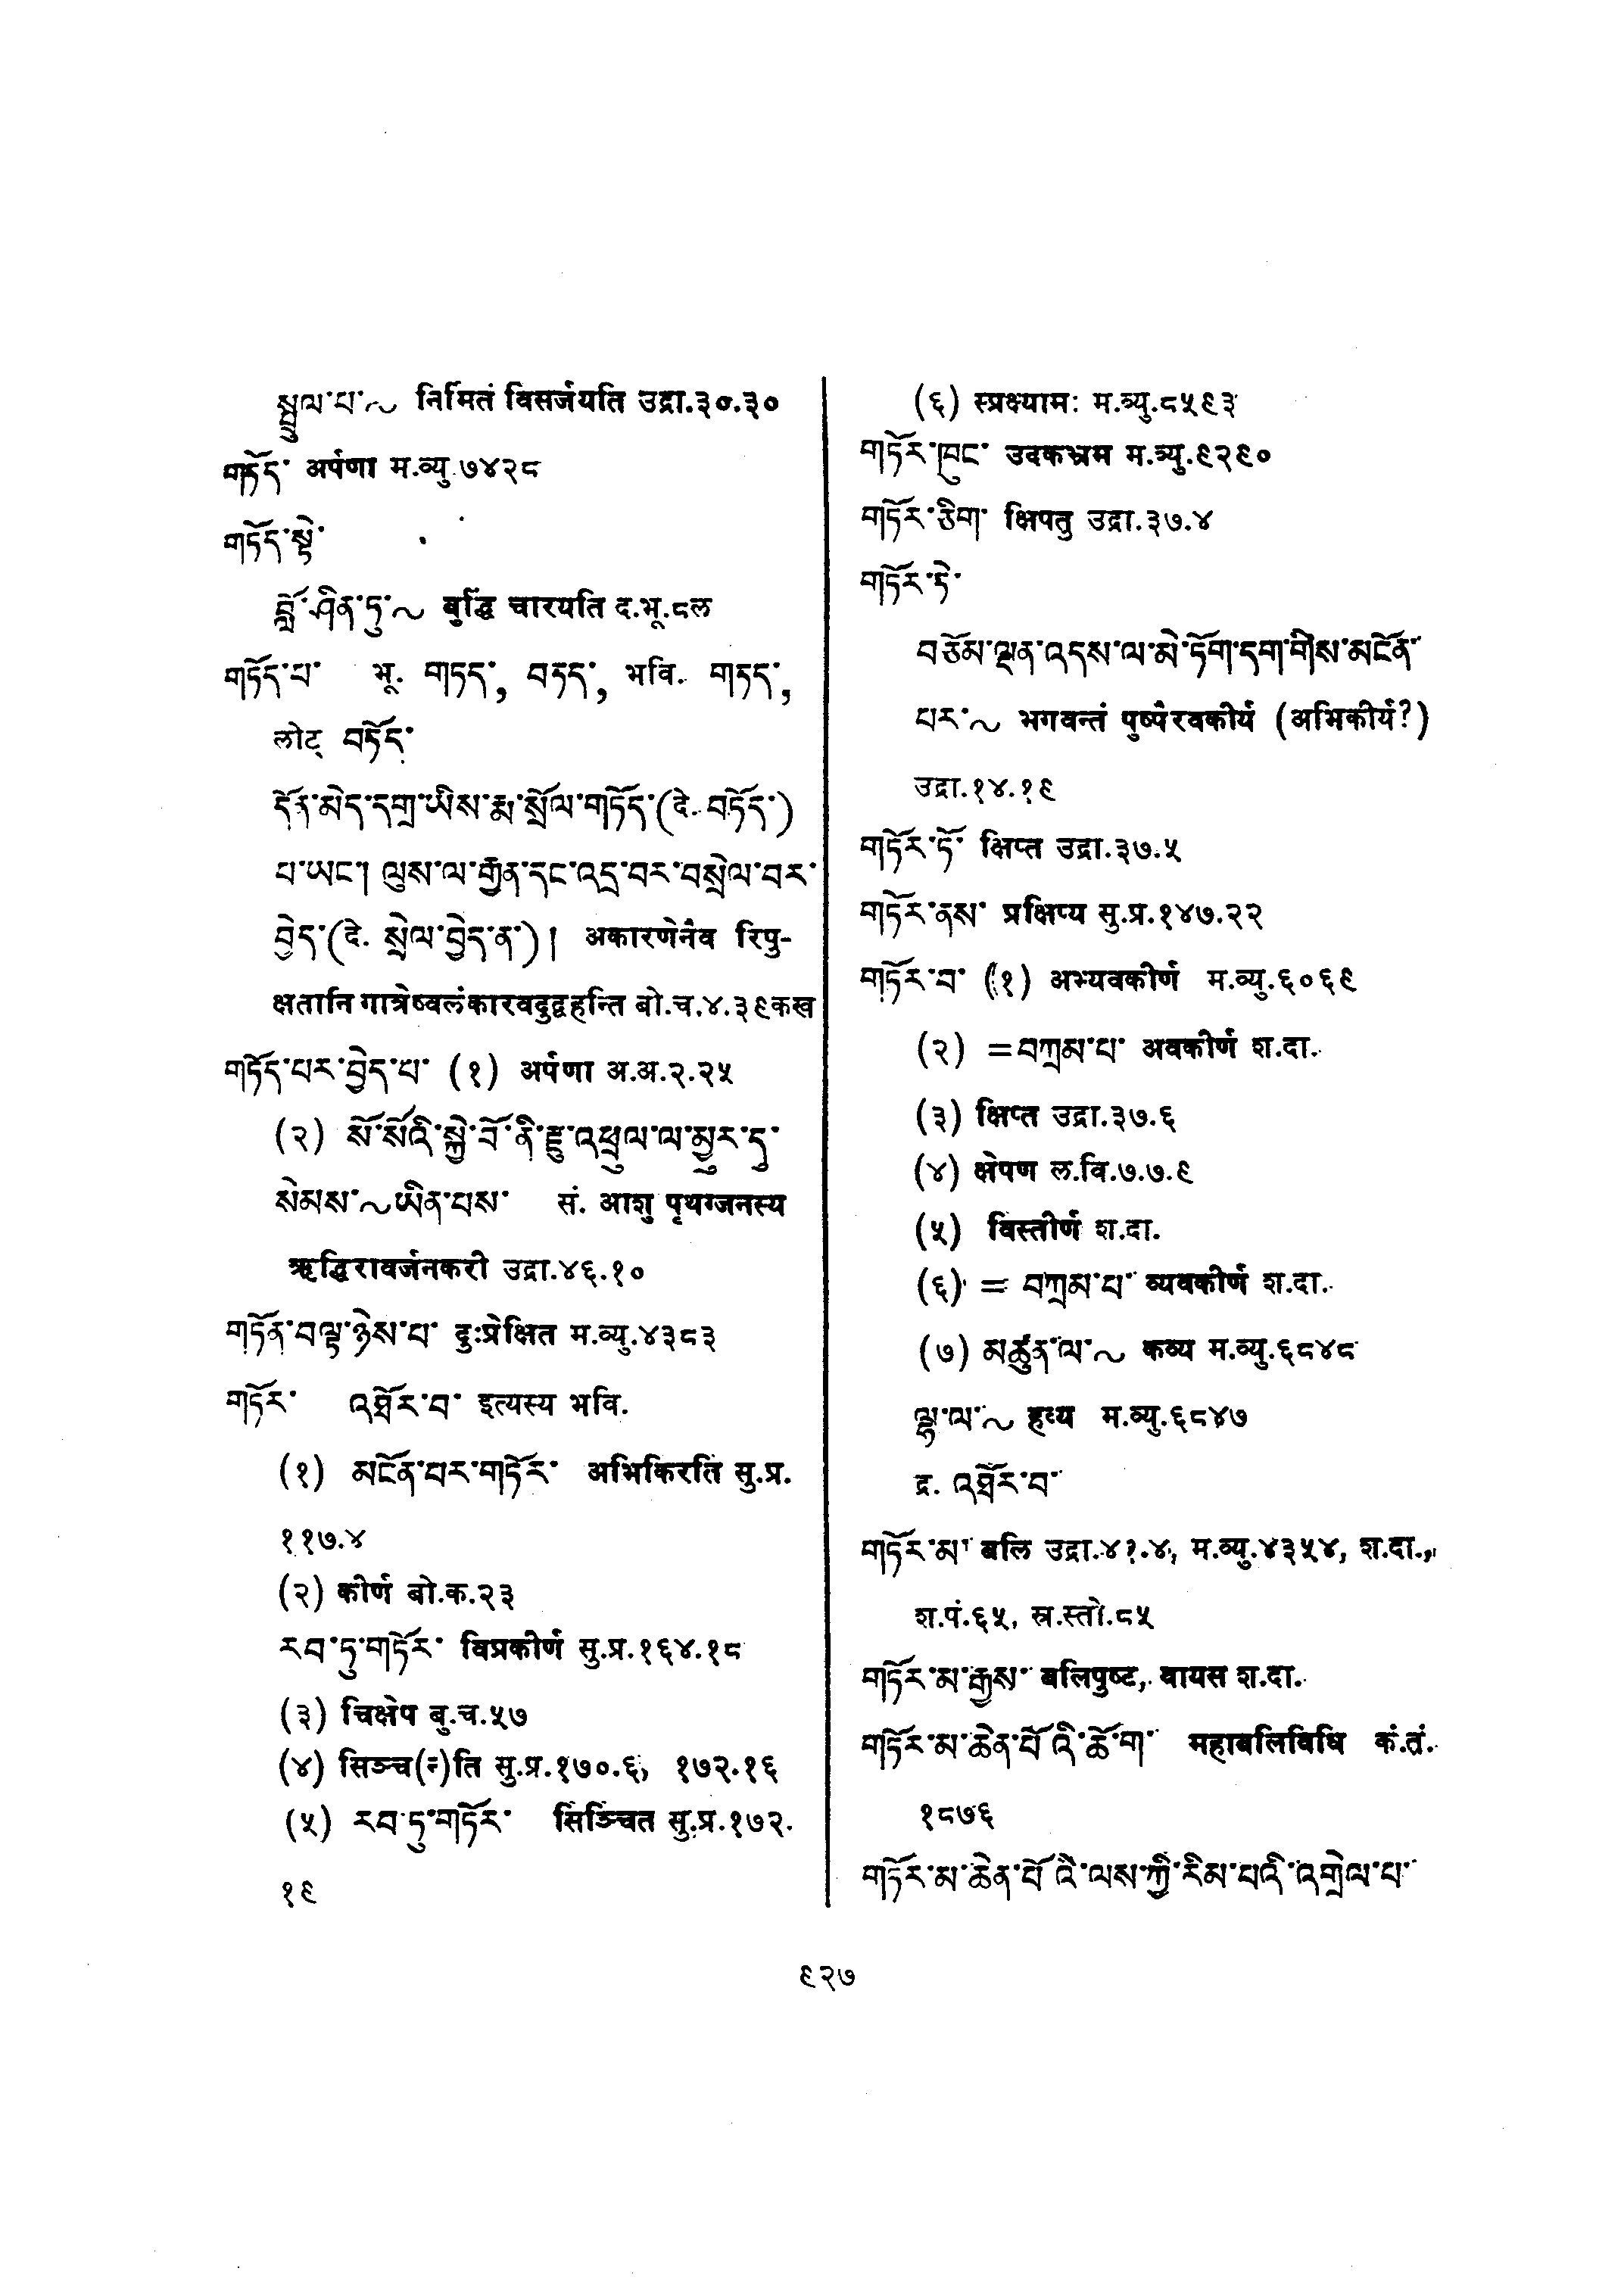 སྤྲུལ་པ་~ निर्मितं विसर्जयति उद्रा.३०.३०
གཏོད་ अर्पणा म.व्यु.७४२८
གཏོད་སྟེ་
བློ་ཤིན་ཏུ་~ बुद्धिं चारयति द.भू.८ल
གཏོད་པ་ भू. གཏད་, བཏད་, भवि. གཏད་,
लोट् བཏོད་
དོན་མེད་དགྲ་ཡིས་རྨ་སྲོལ་གཏོད་(दे. བཏོད་)
པ་ཡང་། ལུས་ལ་རྒྱན་དང་འདྲ་བར་བསྲེལ་བར་
བྱེད་(दे. སྲེལ་བྱེད་ན་)། अकारणेनैव रिपु-
क्षतानि गात्रेष्वलंकारवदुद्वहन्ति बो.च.४.३९कख
གཏོད་པར་བྱེད་པ་ (१) अर्पणा अ.अ.२.२५
(२) སོ་སོའི་སྐྱེ་བོ་ནི་རྫུ་འཕྲུལ་ལ་མྱུར་དུ་
སེམས་~ཡིན་པས་ सं. आशु पृथग्जनस्य
ऋद्धिरावर्जनकरी उद्रा.४६.१०
གཏོན་བལྟ་ཉེས་པ་ दुःप्रेक्षित म.व्यु.४३८३
གཏོར་ འཐོར་བ་ इत्यस्य भवि.
(१) མངོན་པར་གཏོར་ अभिकिरति सु.प्र.
११७.४
(२) कीर्ण बो.क.२३
རབ་ཏུ་གཏོར་ विप्रकीर्ण सु.प्र.१६४.१८
(३) चिक्षेप बु.च.५७
(४) सिञ्च(न्)ति सु.प्र.१७०.६, १७२.१६
(५) རབ་ཏུ་གཏོར་ सिञ्चित सु.प्र.१७२.
१९
(६) स्प्रक्ष्यामः म.व्यु.८५९३
གཏོར་ཁུང་ उदकभ्रम म.व्यु.९२९०
གཏོར་ཅིག་ क्षिपतु उद्रा.३७.४
གཏོར་ཏེ་
བཅོམ་ལྡན་འདས་ལ་མེ་ཏོག་དག་གིས་མངོན་
པར་~ भगवन्तं पुष्पैरवकीर्य (अभिकीर्य?)
उद्रा.१४.१९
གཏོར་ཏོ་ क्षिप्त उद्रा.३७.५
གཏོར་ནས་ प्रक्षिप्य सु.प्र.१४७.२२
གཏོར་བ་ (१) अभ्यवकीर्ण म.व्यु.६०६९
(२) =བཀྲམ་པ་ अवकीर्ण श.दा.
(३) क्षिप्त उद्रा.३७.६
(४) क्षेपण ल.वि.७.७.९
(५) विस्तीर्ण श.दा.
(६) = བཀྲམ་པ་ व्यवकीर्ण श.दा.
(७) མཚུན་ལ་~ कव्य म.व्यु.६८४८
ལྷ་ལ་~ हव्य म.व्यु.६८४७
द्र. འཐོར་བ་
གཏོར་མ་ बलि उद्रा.४१.४, म.व्यु.४३५४, श.दा.,
श.पं.६५, स्र.स्तो.८५
གཏོར་མ་རྒྱས་ बलिपुष्ट, वायस श.दा.
གཏོར་མ་ཆེན་པོ་འི་ཆོ་ག་ महाबलिविधि कं.तं.
१८७६
གཏོར་མ་ཆེན་པོ་འི་ལས་ཀྱི་རིམ་པའི་འགྲེལ་པ་
९२७